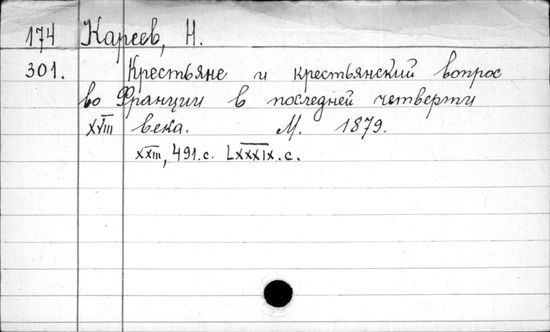 174 Кареев, Н.
301. Крестьяне и крестьянский вопрос
во Франции в последней четверти
XVIII века. М. 1879.
XXIII, 491.с. LXXXIX.с.